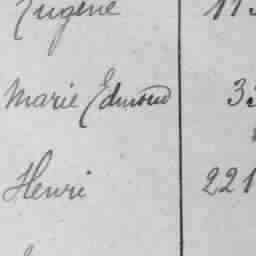 Eugène 113
Marie Edmond 33
Henri 221